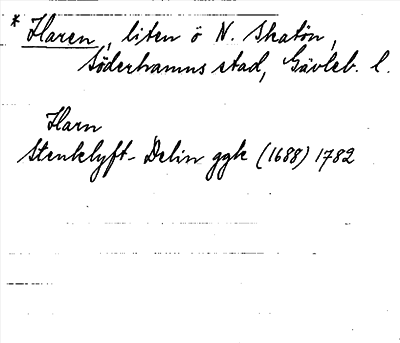 * Haren, liten ö N. Skatön,
Söderhamns stad, Gävleb. l.
Harn
Stenklyft-Delin ggk (1688) 1782